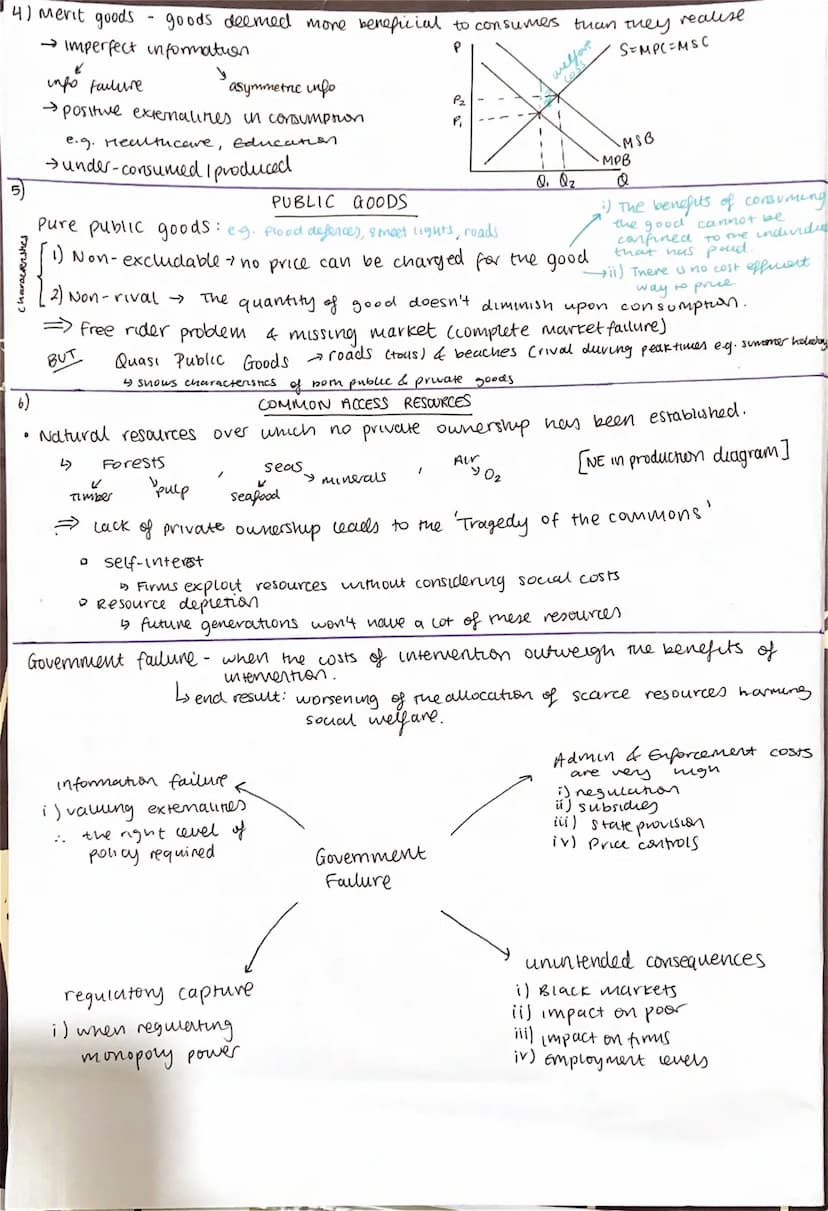 4) Merit goods - goods deemed more beneficial to consumes than they realise
→ Imperfect information
info failure
asymmetric info
→ positive externalities in consumption
e.g. Healthcare, Education
→ under-consumed / produced
P
welfare
cost
S=MPC=MSC
P2
P1
MSB
MPB
Q1 Q2 Q
5)
PUBLIC GOODS
Pure public goods: e.g. flood defences, street lights, roads
characteristics
1) Non-excludable → no price can be charged for the good
i) The benefits of consuming
the good cannot be
confined to the individual
that has paid.
→ ii) There is no cost efficient
way to price
2) Non-rival → The quantity of good doesn't diminish upon consumption.
⇒ Free rider problem & missing market (complete market failure)
BUT Quasi Public Goods → roads (tolls) & beaches (rival during peak times e.g. summer holiday
↳ shows characteristics of both public & private goods
6)
COMMON ACCESS RESOURCES
• Natural resources over which no private ownership has been established.
↳ Forests , seas , Air
Timber pulp seafood → minerals O2
[NE in production diagram]
⇒ Lack of private ownership leads to the 'Tragedy of the commons'
○ self-interest
↳ Firms exploit resources without considering social costs
○ Resource depletion
↳ future generations won't have a lot of these resources
Government failure - when the costs of intervention outweigh the benefits of
intervention.
↳ end result: worsening of the allocation of scarce resources harming
social welfare.
information failure
i) valuing externalities
∴ the right level of
policy required
Admin & Enforcement costs
are very high
i) regulation
ii) subsidies
iii) State provision
iv) Price controls
Government
Failure
regulatory capture
i) when regulating
monopoly power
unintended consequences
i) Black markets
ii) impact on poor
iii) impact on firms
iv) Employment levels